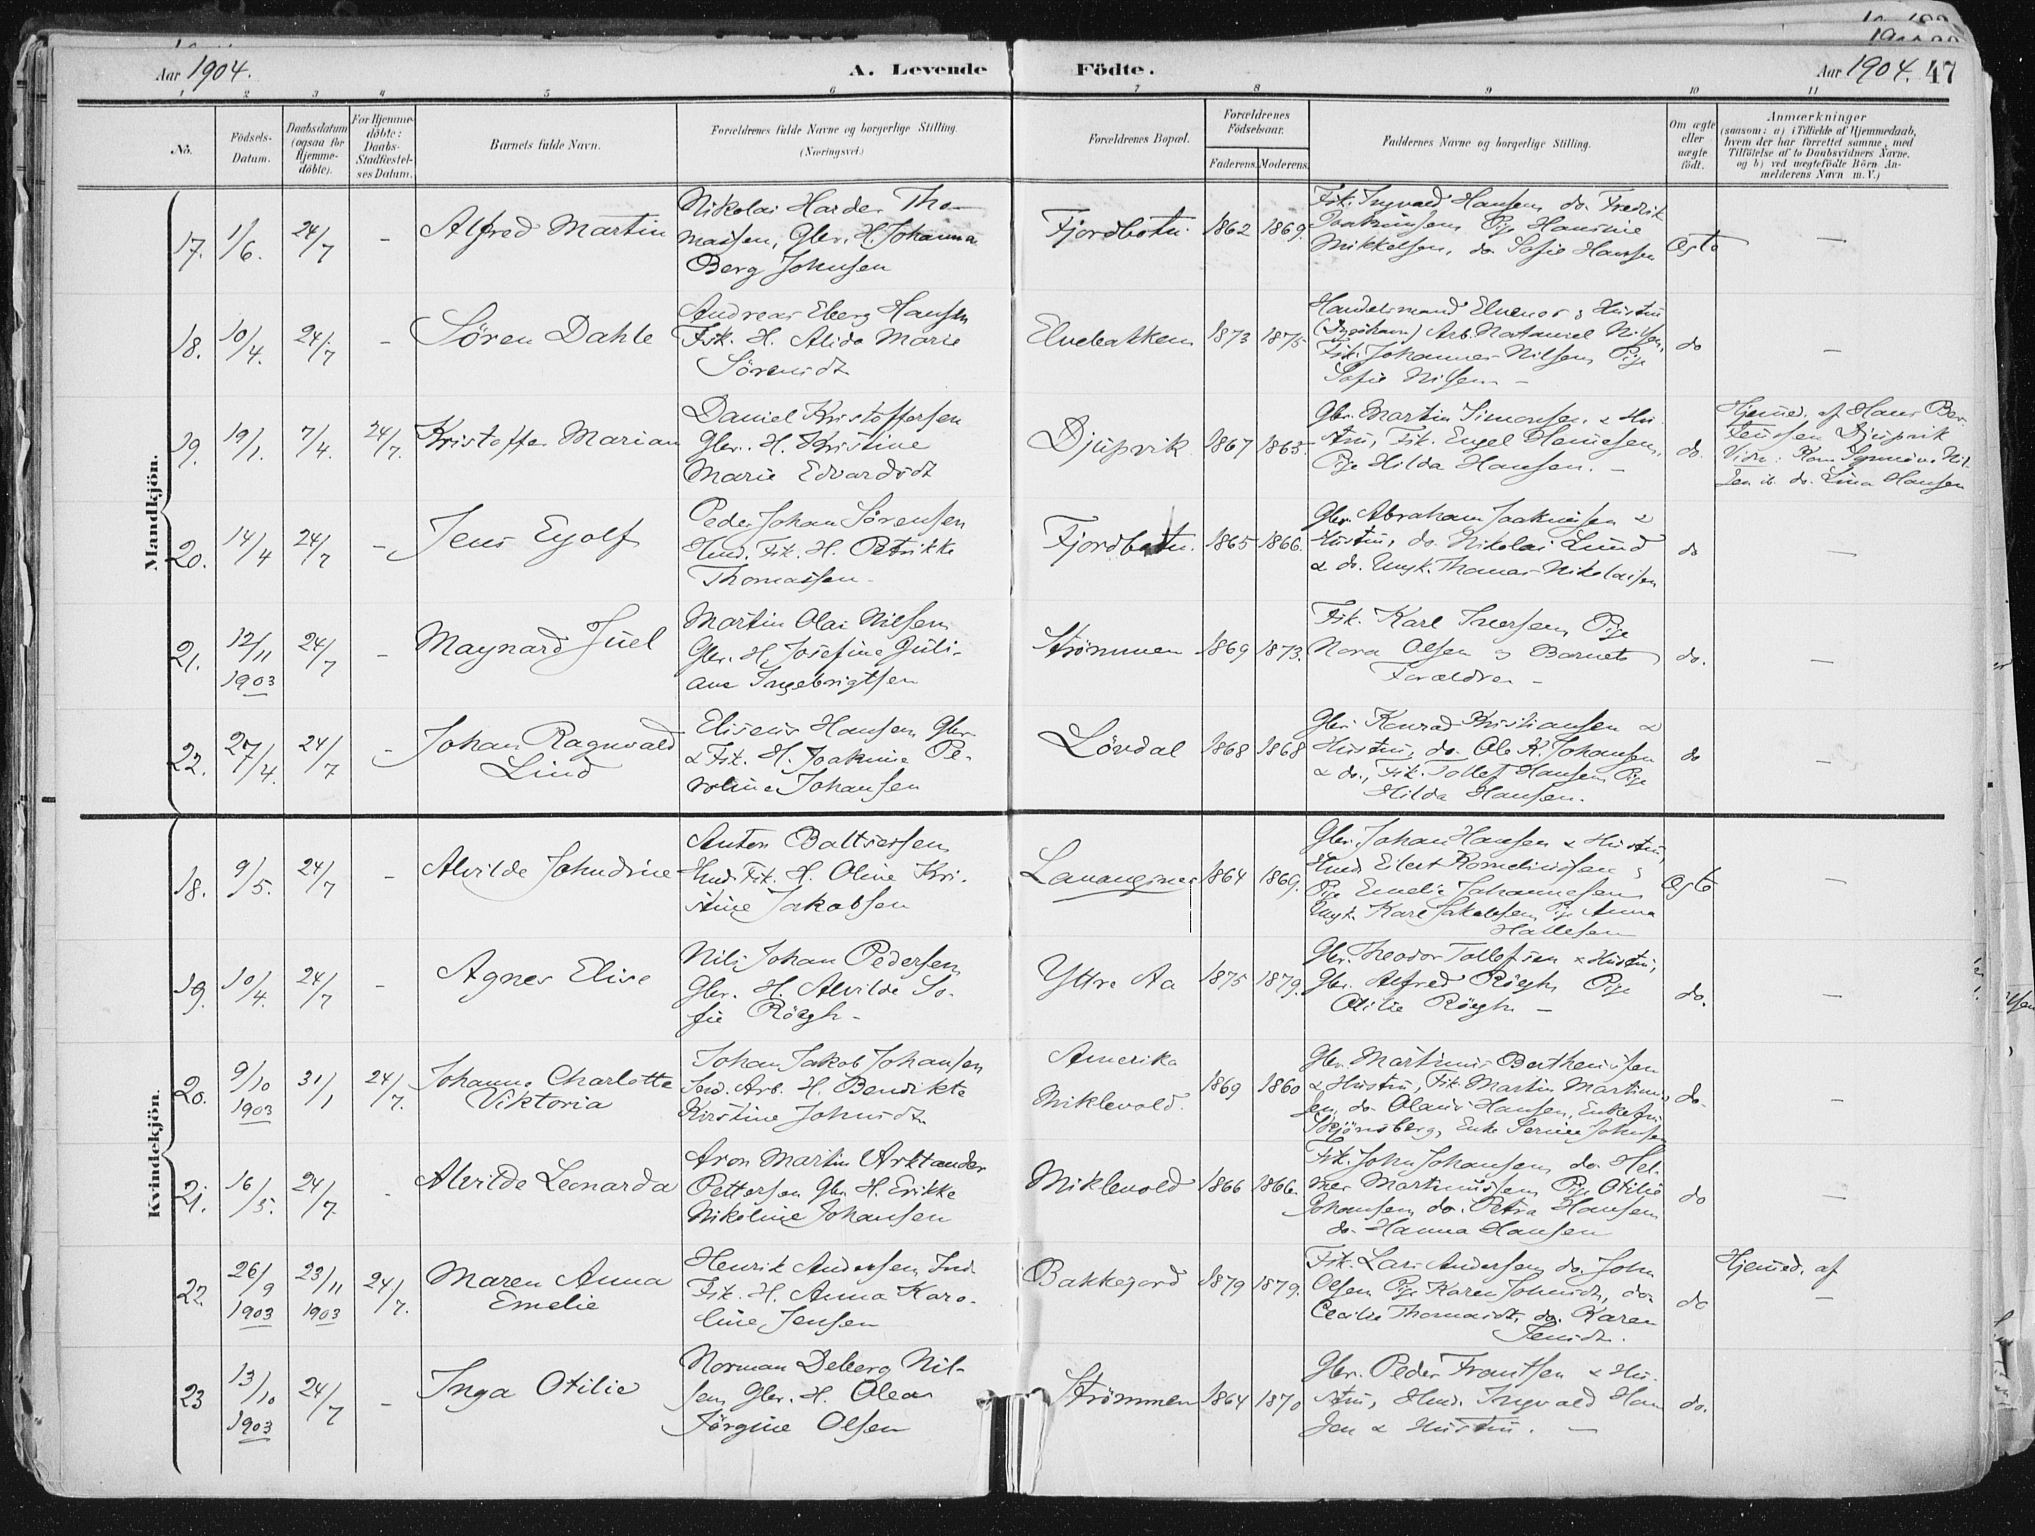 Aar 1904. A. Levende Födte. Aar 1904. 47
1 2 3 4 5 6 7 8 9 10 11
No.
Födsels-
Datum.
Daabsdatum
(ogsaa for
Hjemme-
döbte).
For Hjemme-
döbte:
Daabs-
Stadfæstel-
ses Datum.
Barnets fulde Navn.
Forældrenes fulde Navne og borgerlige Stilling.
(Næringsvei.)
Forældrenes Bopæl.
Forældrenes
Födselsaar.
Faderens. Moderens.
Faddernes Navne og borgerlige Stilling.
Om ægte
eller
uægte
födt.
Anmærkninger
(saasom: a) i Tilfælde af Hjemmedaab,
hvem der har forrettet samme, med
Tilföielse af to Daabsvidners Navne,
og b) ved uægtefödte Börn An-
melderens Navn m. V.)
Mandkjön.
17. 1/6. 24/7 - Alfred Martin
Nikolai Harder Tho-
massen, Gbr. H. Johanna
Berg Johnsen
Fjordbotn. 1862 1869.
Fisk. Ingvald Hansen, do. Fredrik
Joakimsen, Pige Hansine
Mikkelsen, do. Sofie Hansen
Ægte —
18. 10/4. 24/7 - Sören Dahle
Andreas Eberg Hansen
Fisk. H. Alida Marie
Sörensdt.
Elvebakken 1873 1875
Handelsmand Elvenor & Hustru
(Ingöhavn) Arb. Nataniel Nilsen,
Fisk. Johannes Nilsen, Pige
Sofie Nilsen —
do —
19. 19/1. 7/4. 24/7. Kristoffer Marian
Daniel Kristoffersen
Gbr. H. Kristine
Marie Edvardsdt
Djupvik 1867 1865
Gbr. Martin Simonsen & Hu-
stru, Fisk. Engel Heniksen,
Pige Hilda Hansen. —
do.
Hjemmed. af Hans Ber-
teussen Djupvik
Vidn: Kone Nil-
sen & do. Lina Hansen
20. 14/4 24/7 - Jens Eyolf
Peder Johan Sörensen
Hmd. Fisk. H. Petrikke
Thomassen.
Fjordbotn. 1865 1866.
Gbr. Abraham Joakimsen &
Hustru, do. Nikolai Lund
& do. Ungk. Thomas Nikolaisen
do —
21. 12/11 1903 24/7 - Maynard Juel
Martin Olai Nilsen
Gbr. H. Josefine Juli-
ane Ingebrigtsen
Strömmen 1869 1873.
Fisk. Karl Iversen, Pige
Nora Olsen & Barnets
Forældre —
do. —
22. 27/4. 24/7 - Johan Ragnvald
Lind
Eliseus Hansen Gbr.
& Fisk. H. Joakime Pe-
roline Johansen
Lövdal 1868 1868
Gbr. Konrad Kristiansen &
Hustru, do. Ole K. Johansen
& do., Fisk. Tollef Hansen, Pige
Hilda Hansen.
do —
Kvindekjön.
18. 9/5. 24/7 - Alvilde Johndine
Anton Baltsersen
Hmd. Fisk. H. Oline Kri-
stine Jakobsen
Lavangsnes 1864 1869.
Gbr. Johan Hansen & Hustru,
Hmd. Eilert Korneliussen &
Pige Emelie Johannesen
Ungk. Karl Jakobsen, Pige Anna
Hallesen
Ægte —
19. 10/4. 24/7 - Agnes Elise
Nils Johan Pedersen
Gbr. H. Alvilde So-
fie Rögh.
Yttre Aa 1875 1879.
Gbr. Theodor Tollefsen & Hustru,
Gbr. Alfred Rögh, Pige
Otilie Rögh —
do. —
20. 9/10 1903 31/1 24/7. Johanne Charlotte
Viktoria
Johan Jakob Johansen
Ind. Arb. H. Bendikte
Kirstine Johnsdt.
Amerika
Miklevold. 1869 1860
Gbr. Martinus Bertheussen
& Hustru, Fisk. Martin Martinus-
sen, do. Olaus Hansen, Enkefru
Skjönsberg, Enke Serine Johnsen
do. —
21. 16/5. 24/7. - Alvilde Leonarda
Aron Martin Arktander
Pettersen Gbr. H. Erikke
Nikoline Johansen
Miklevold 1866 1866.
Fisk. John Johansen, do. Hel-
mer Martinussen, Pige Otilie
Johansen, do. Petra Hansen,
do. Hanna Hansen
do —
22. 26/9 1903 23/11 1903 24/7. Maren Anna
Emelie
Henrik Andersen, Ind.
Fisk. H. Anna Karo-
line Jensen
Bakkejord 1879 1879.
Fisk. Lars Andersen, do. John
Olsen, Pige Karen Johnsdt., do.
Cecilie Thomasdt., do. Karen
Jensdt.
do
Hjemmed. af
—
23 13/10 1903 24/7 - Inga Otilie
Norman Deberg Nil-
sen, Gbr. H. Olea
Jörgine Olsen
Strömmen 1864 1870
Gbr. Peder Frantsen & Hu-
stru, Hmd. Ingvald Han-
sen & Hustru. —
do.